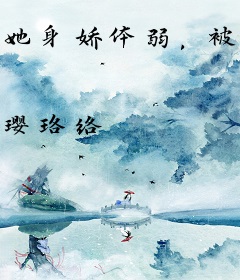 她身娇体弱，被
璎珞络